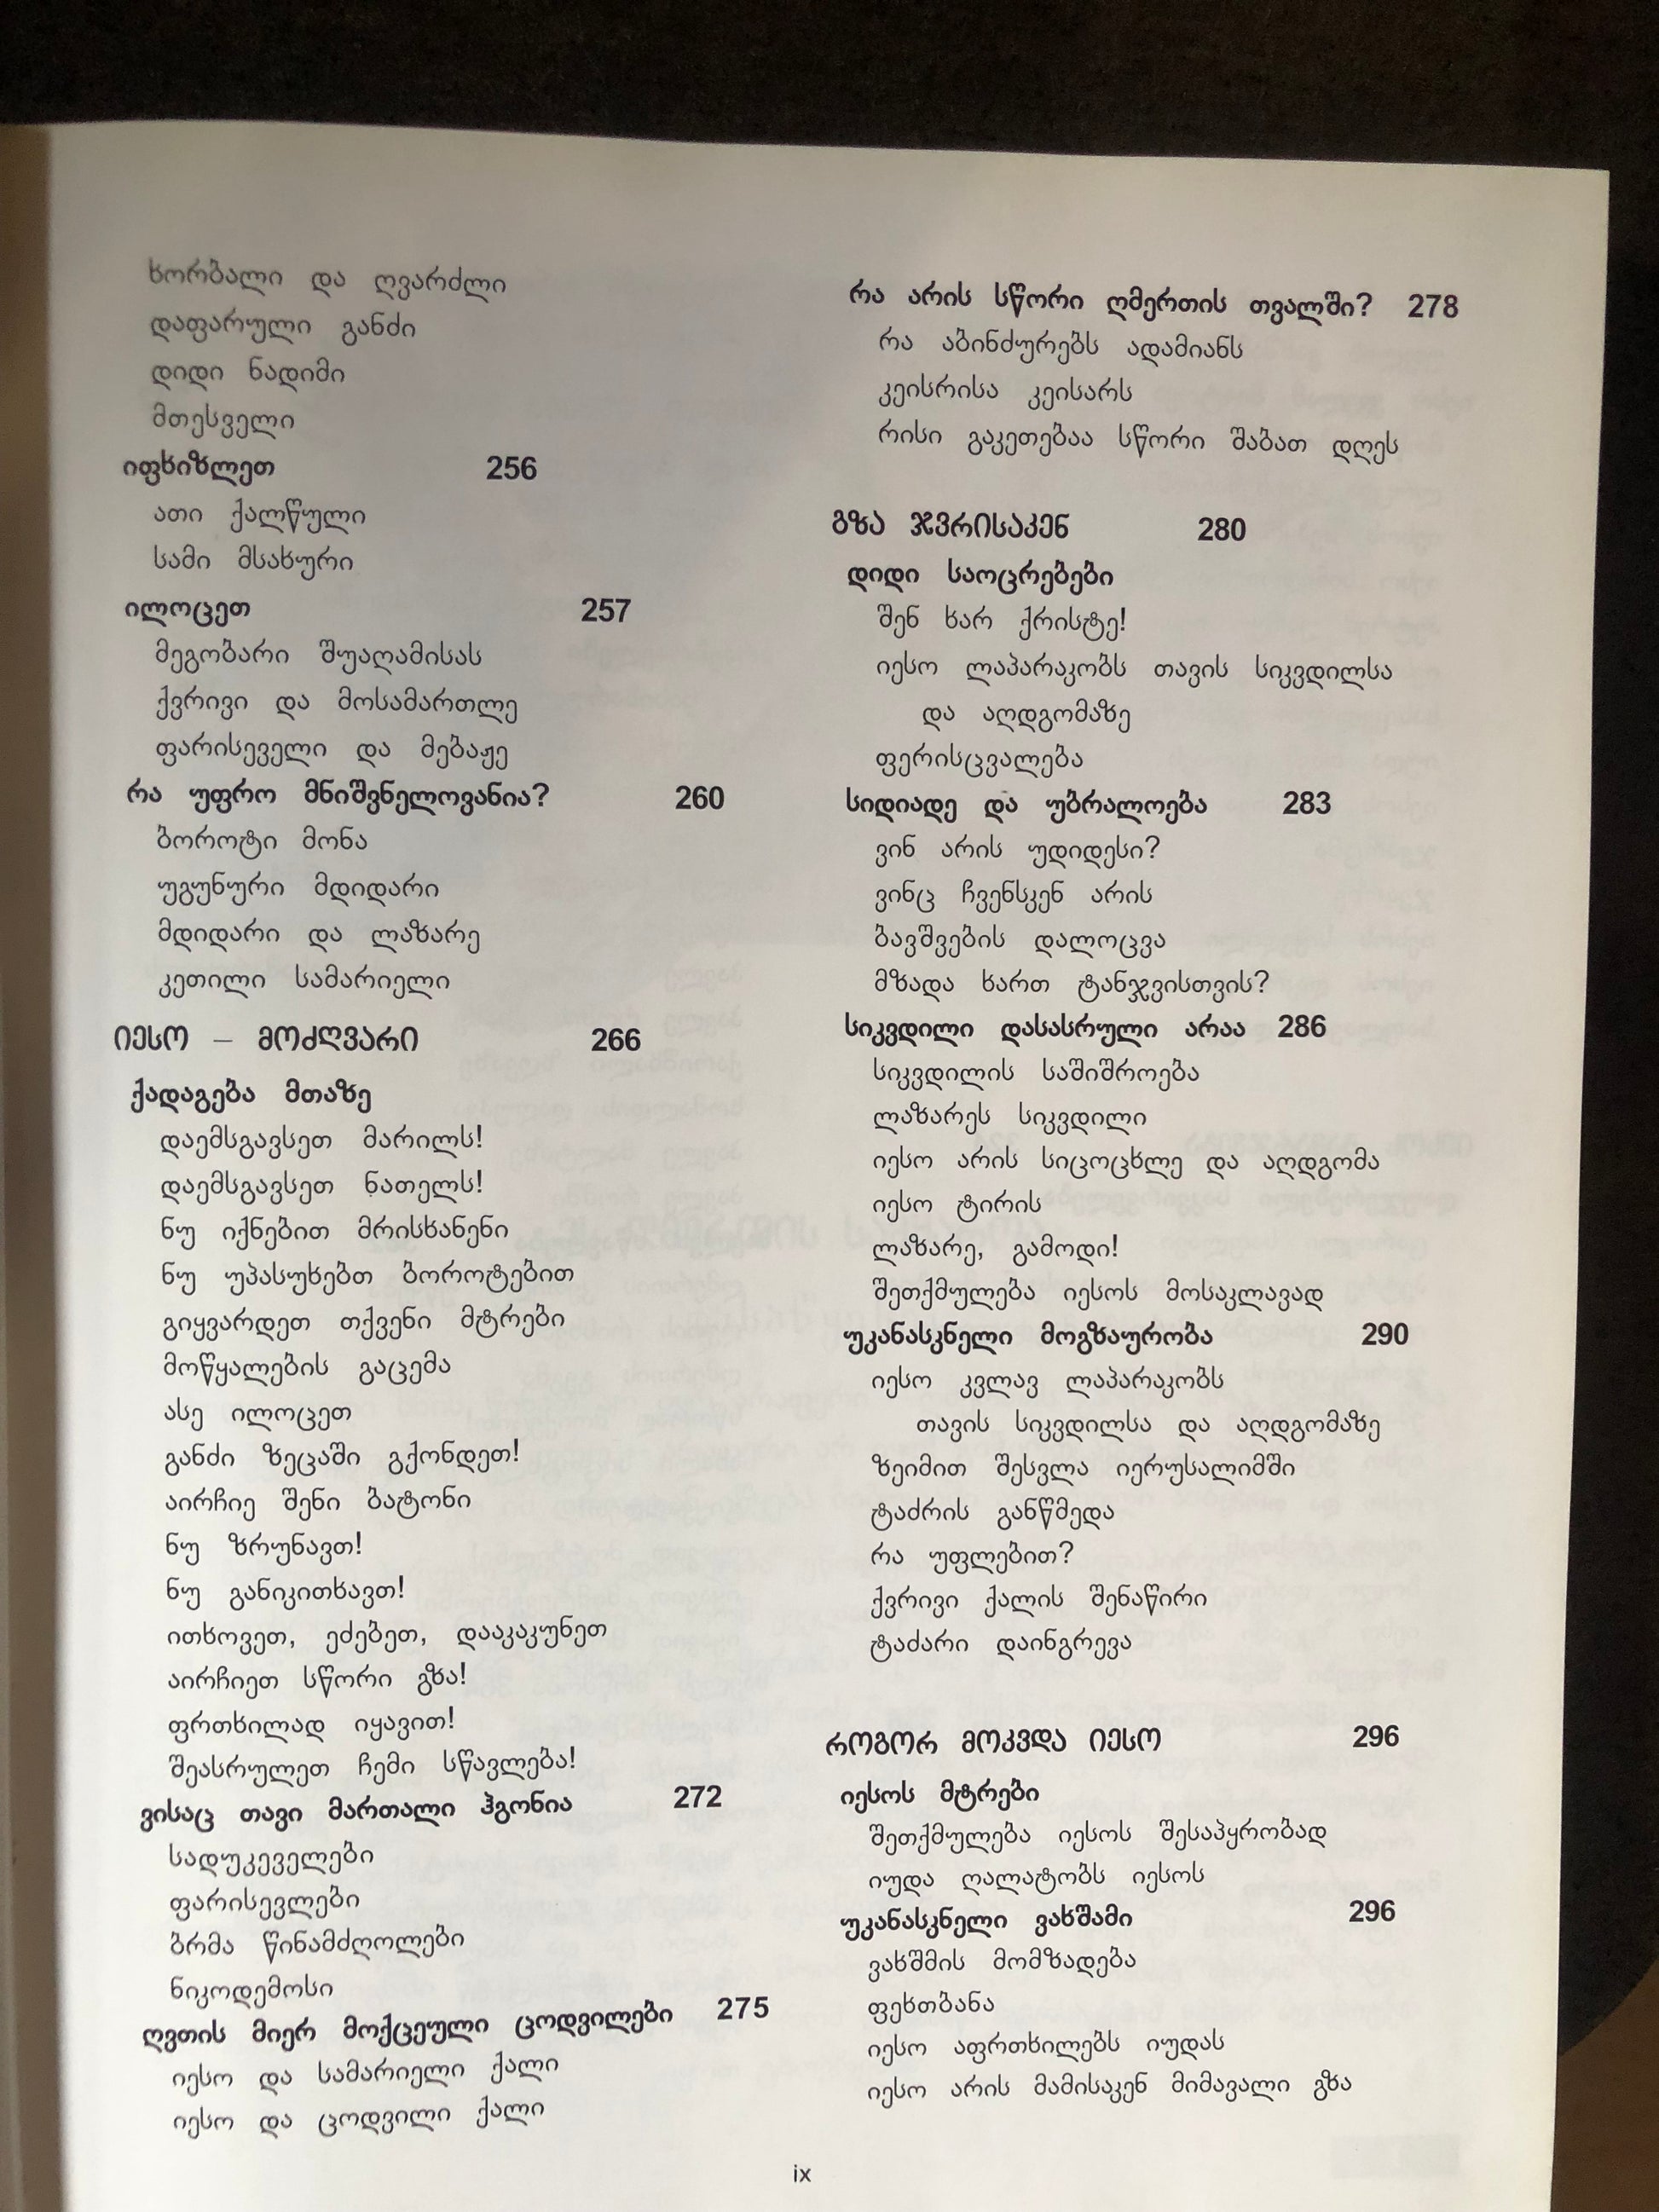 ხორბალი და ღვარძლი
დაფარული განძი
დიდი ნადიმი
მთესველი
იფხიზლეთ 256
ათი ქალწული
სამი მსახური
ილოცეთ 257
მეგობარი შუაღამისას
ქვრივი და მოსამართლე
ფარისეველი და მებაჟე
რა უფრო მნიშვნელოვანია? 260
ბოროტი მონა
უგუნური მდიდარი
მდიდარი და ლაზარე
კეთილი სამარიელი
იესო – მოძღვარი 266
ქადაგება მთაზე
დაემსგავსეთ მარილს!
დაემსგავსეთ ნათელს!
ნუ იქნებით მრისხანენი
ნუ უპასუხებთ ბოროტებით
გიყვარდეთ თქვენი მტრები
მოწყალების გაცემა
ასე ილოცეთ
განძი ზეცაში გქონდეთ!
აირჩიე შენი ბატონი
ნუ ზრუნავთ!
ნუ განიკითხავთ!
ითხოვეთ, ეძებეთ, დააკაკუნეთ
აირჩიეთ სწორი გზა!
ფრთხილად იყავით!
შეასრულეთ ჩემი სწავლება!
ვისაც თავი მართალი ჰგონია 272
სადუკეველები
ფარისევლები
ბრმა წინამძღოლები
ნიკოდემოსი
ღვთის მიერ მოქცეული ცოდვილები 275
იესო და სამარიელი ქალი
იესო და ცოდვილი ქალი
რა არის სწორი ღმერთის თვალში? 278
რა აბინძურებს ადამიანს
კეისრისა კეისარს
რისი გაკეთებაა სწორი შაბათ დღეს
გზა ჯვრისაკენ 280
დიდი საოცრებები
შენ ხარ ქრისტე!
იესო ლაპარაკობს თავის სიკვდილსა
და აღდგომაზე
ფერისცვალება
სიდიადე და უბრალოება 283
ვინ არის უდიდესი?
ვინც ჩვენსკენ არის
ბავშვების დალოცვა
მზადა ხართ ტანჯვისთვის?
სიკვდილი დასასრული არაა 286
სიკვდილის საშიშროება
ლაზარეს სიკვდილი
იესო არის სიცოცხლე და აღდგომა
იესო ტირის
ლაზარე, გამოდი!
შეთქმულება იესოს მოსაკლავად
უკანასკნელი მოგზაურობა 290
იესო კვლავ ლაპარაკობს
თავის სიკვდილსა და აღდგომაზე
ზეიმით შესვლა იერუსალიმში
ტაძრის განწმედა
რა უფლებით?
ქვრივი ქალის შენაწირი
ტაძარი დაინგრევა
როგორ მოკვდა იესო 296
იესოს მტრები
შეთქმულება იესოს შესაპყრობად
იუდა ღალატობს იესოს
უკანასკნელი ვახშამი 296
ვახშმის მომზადება
ფეხთბანა
იესო აფრთხილებს იუდას
იესო არის მამისაკენ მიმავალი გზა
ix